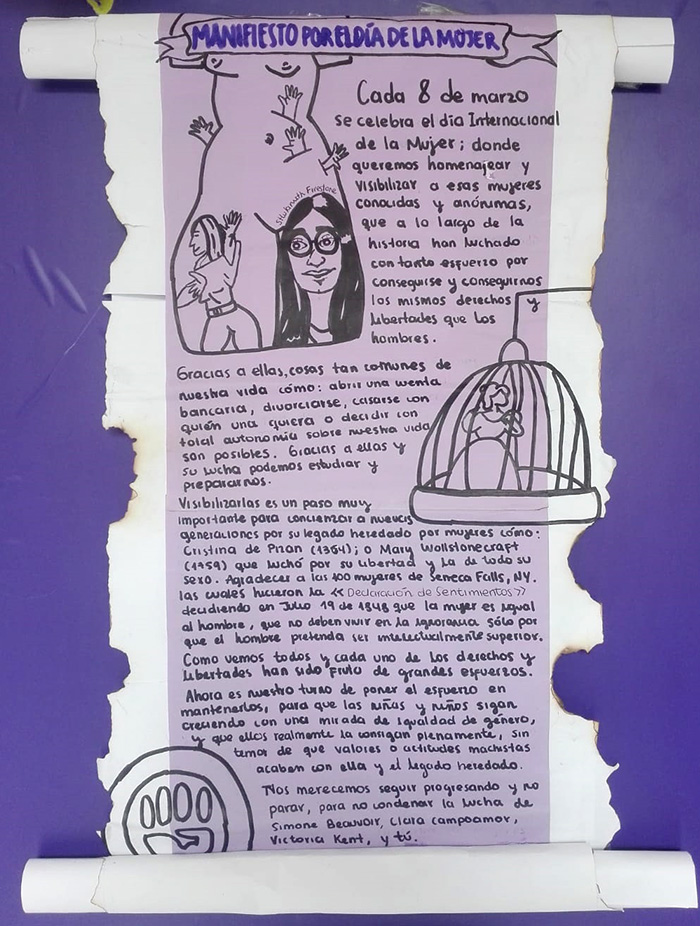 MANIFIESTO POR EL DÍA DE LA MUJER
Cada 8 de marzo
se celebra el dia Internacional
de la Mujer; donde
queremos homenajear y
visibilizar a esas mujeres
conocidas y anónimas,
que a lo largo de la
historia han luchado
con tanto esfuerzo por
conseguirse y conseguirnos
los mismos derechos y
libertades que los
hombres.
Shulamith Firestone
Gracias a ellas, cosas tan comunes de
nuestra vida cómo: abrir una cuenta
bancaria, divorciarse, casarse con
quién una quiera o decidir con
total autonomía sobre nuestra vida
son posibles. Gracias a ellas y
su lucha podemos estudiar y
prepararnos.
Visibilizarlas es un paso muy
importante para concienzar a nuevas
generaciones por su legado heredado por mujeres cómo:
Cristina de Pizan (1364); o Mary Wollstonecraft
(1959) que luchó por su libertad y la de todo su
sexo. Agradecer a las 100 mujeres de Seneca Falls, NY.
las cuales hicieron la << Declaración de Sentimientos >>
decidiendo en Julio 19 de 1848 que la mujer es igual
al hombre, que no deben vivir en la ignorancia sólo por
que el hombre pretenda ser intelectualmente superior.
Como vemos todos y cada uno de los derechos y
libertades han sido fruto de grandes esfuerzos.
Ahora es nuestro turno de poner el esfuerzo en
mantenerlos, para que las niñas y niños sigan
creciendo con una mirada de igualdad de género,
y que ellos realmente la consigan plenamente, sin
temor de que valores o actitudes machistas
acaben con ella y el legado heredado.
Nos merecemos seguir progresando y no
parar, para no condenar la lucha de
Simone Beauvoir, Clara Campoamor,
Victoria Kent, y tú.